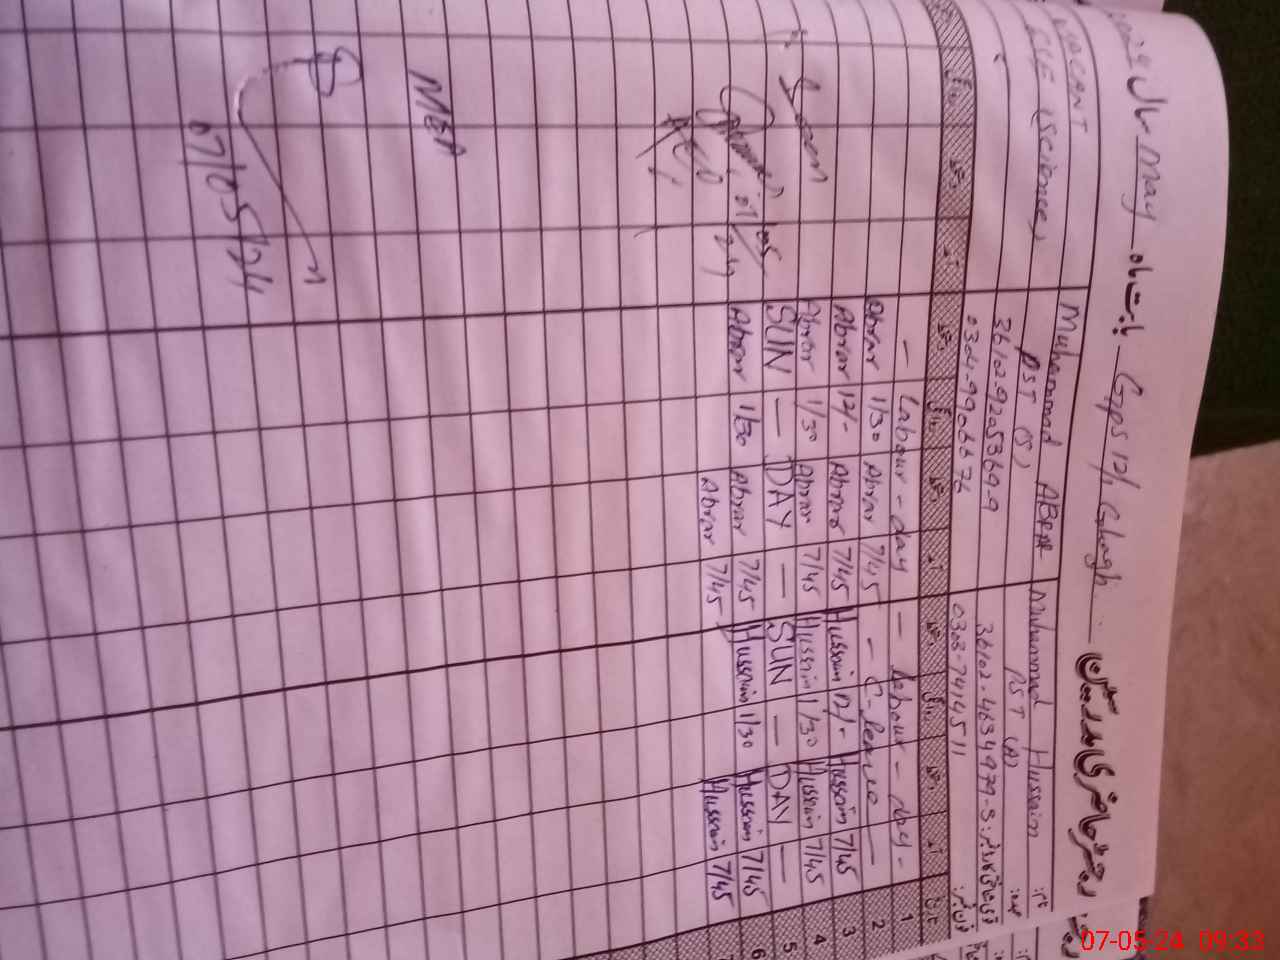 رجسٹر حاضری مدرسین Gps 12/1 Ghagh بابت ماہ May سال 2024
نام: Muhammad Hussain Muhammad ABRAR VACANT
عہدہ: PST (A) PST (S) ESE (Science)
شناختی کارڈ نمبر: 36102-4634979-3 3610292053699
فون نمبر: 0303-7414511 0304-9906676
تاریخ
1 - Labour - day - - Labour - day
2 - C-leave - Abrar 7/45 Abrar 1/30
3 Hussain 7/45 Hussain 12/- Abrar 7/45 Abrar 12/-
4 Hussain 7/45 Hussain 1/30 Abrar 7/45 Abrar 1/30
5 SUN - DAY - SUN - DAY -
6 Hussain 7/45 Hussain 1/30 Abrar 7/45 Abrar 1/30
Hussain 7/45 Abrar 7/45
Seen
07/05/24
MEA
07/05/24
07-05-24 09:33